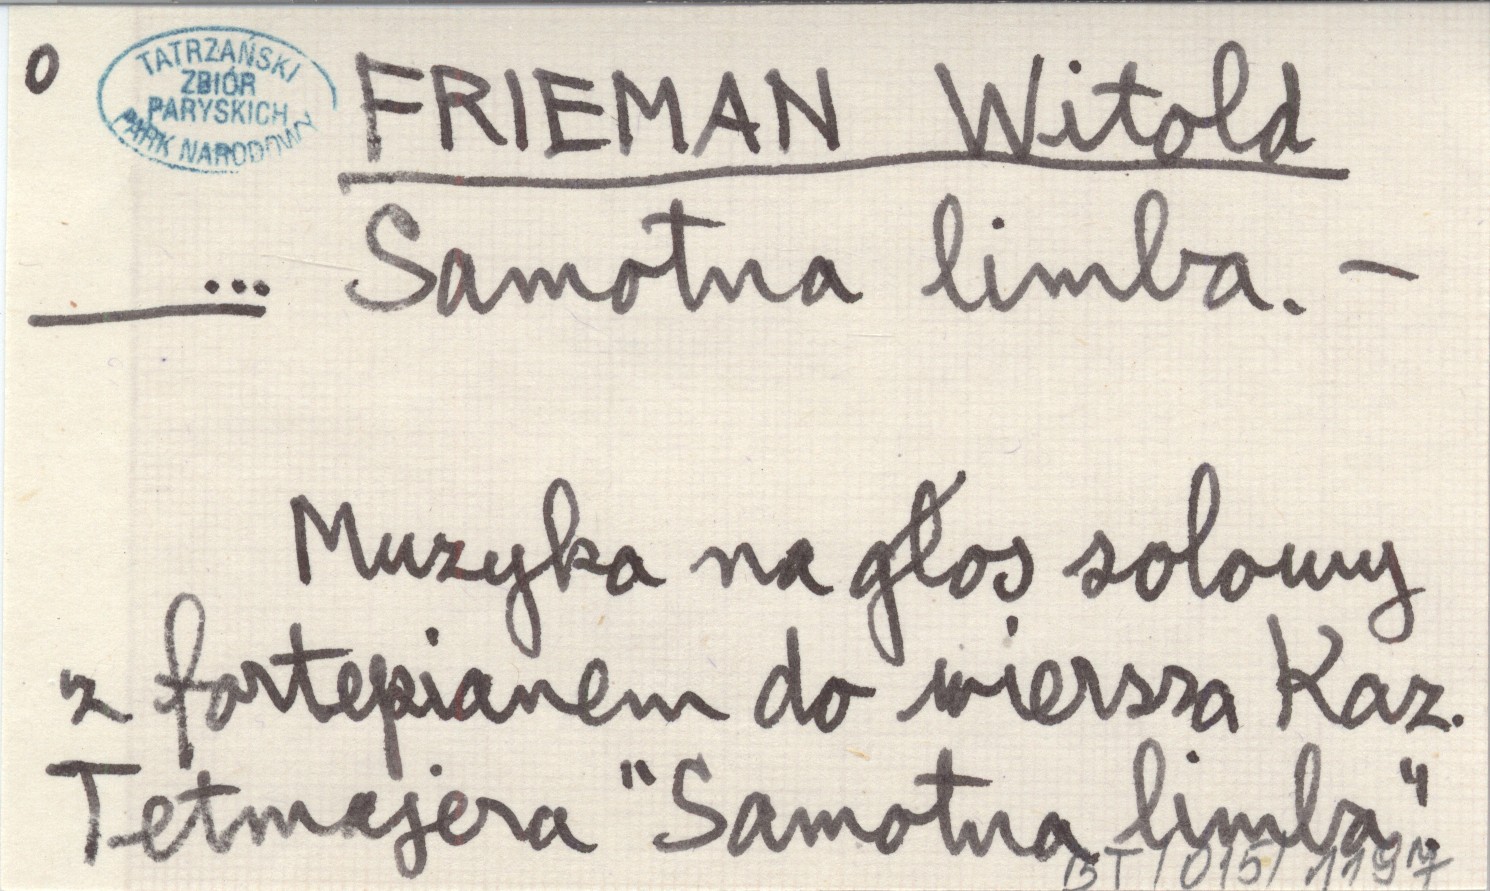 0
TATRZAŃSKI
ZBIÓR
PARYSKICH
PARK NARODOWY
FRIEMAN Witold
... Samotna limba. —
Muzyka na głos solowy
z fortepianem do wiersza Kaz.
Tetmajera "Samotna limba".
BT/015/1197